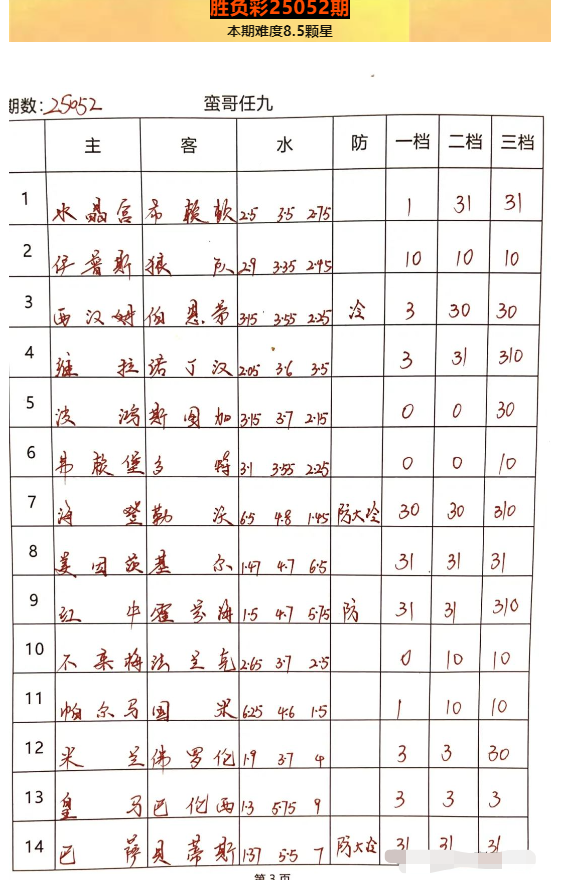 胜负彩25052期
本期难度8.5颗星
期数:25052 蛮哥任九
主 客 水 防 一档 二档 三档
1 水晶宫 布莱顿 2·5 3·5 2·75 1 31 31
2 伊普斯 狼队 2·9 3·35 2·45 10 10 10
3 西汉姆 伯恩茅 3·15 3·55 2·25 冷 3 30 30
4 维拉 诺丁汉 2·05 3·6 3·5 3 31 310
5 波鸿 斯图加 3·15 3·7 2·15 0 0 30
6 弗赖堡 多特 3·1 3·55 2·25 0 0 10
7 海登 勒沃 6·5 4·8 1·45 防大冷 30 30 310
8 美因茨 基尔 1·47 4·7 6·5 31 31 31
9 红牛 霍芬海 1·5 4·7 5·75 防 31 31 310
10 不来梅 法兰克 2·65 3·7 2·5 0 10 10
11 帕尔马 国米 6·25 4·6 1·5 1 10 10
12 米兰 佛罗伦 1·9 3·7 4 3 3 30
13 皇马 巴伦西 1·3 5·75 9 3 3 3
14 巴萨 贝蒂斯 1·37 5·5 7 防大冷 31 31 31
第 3 页